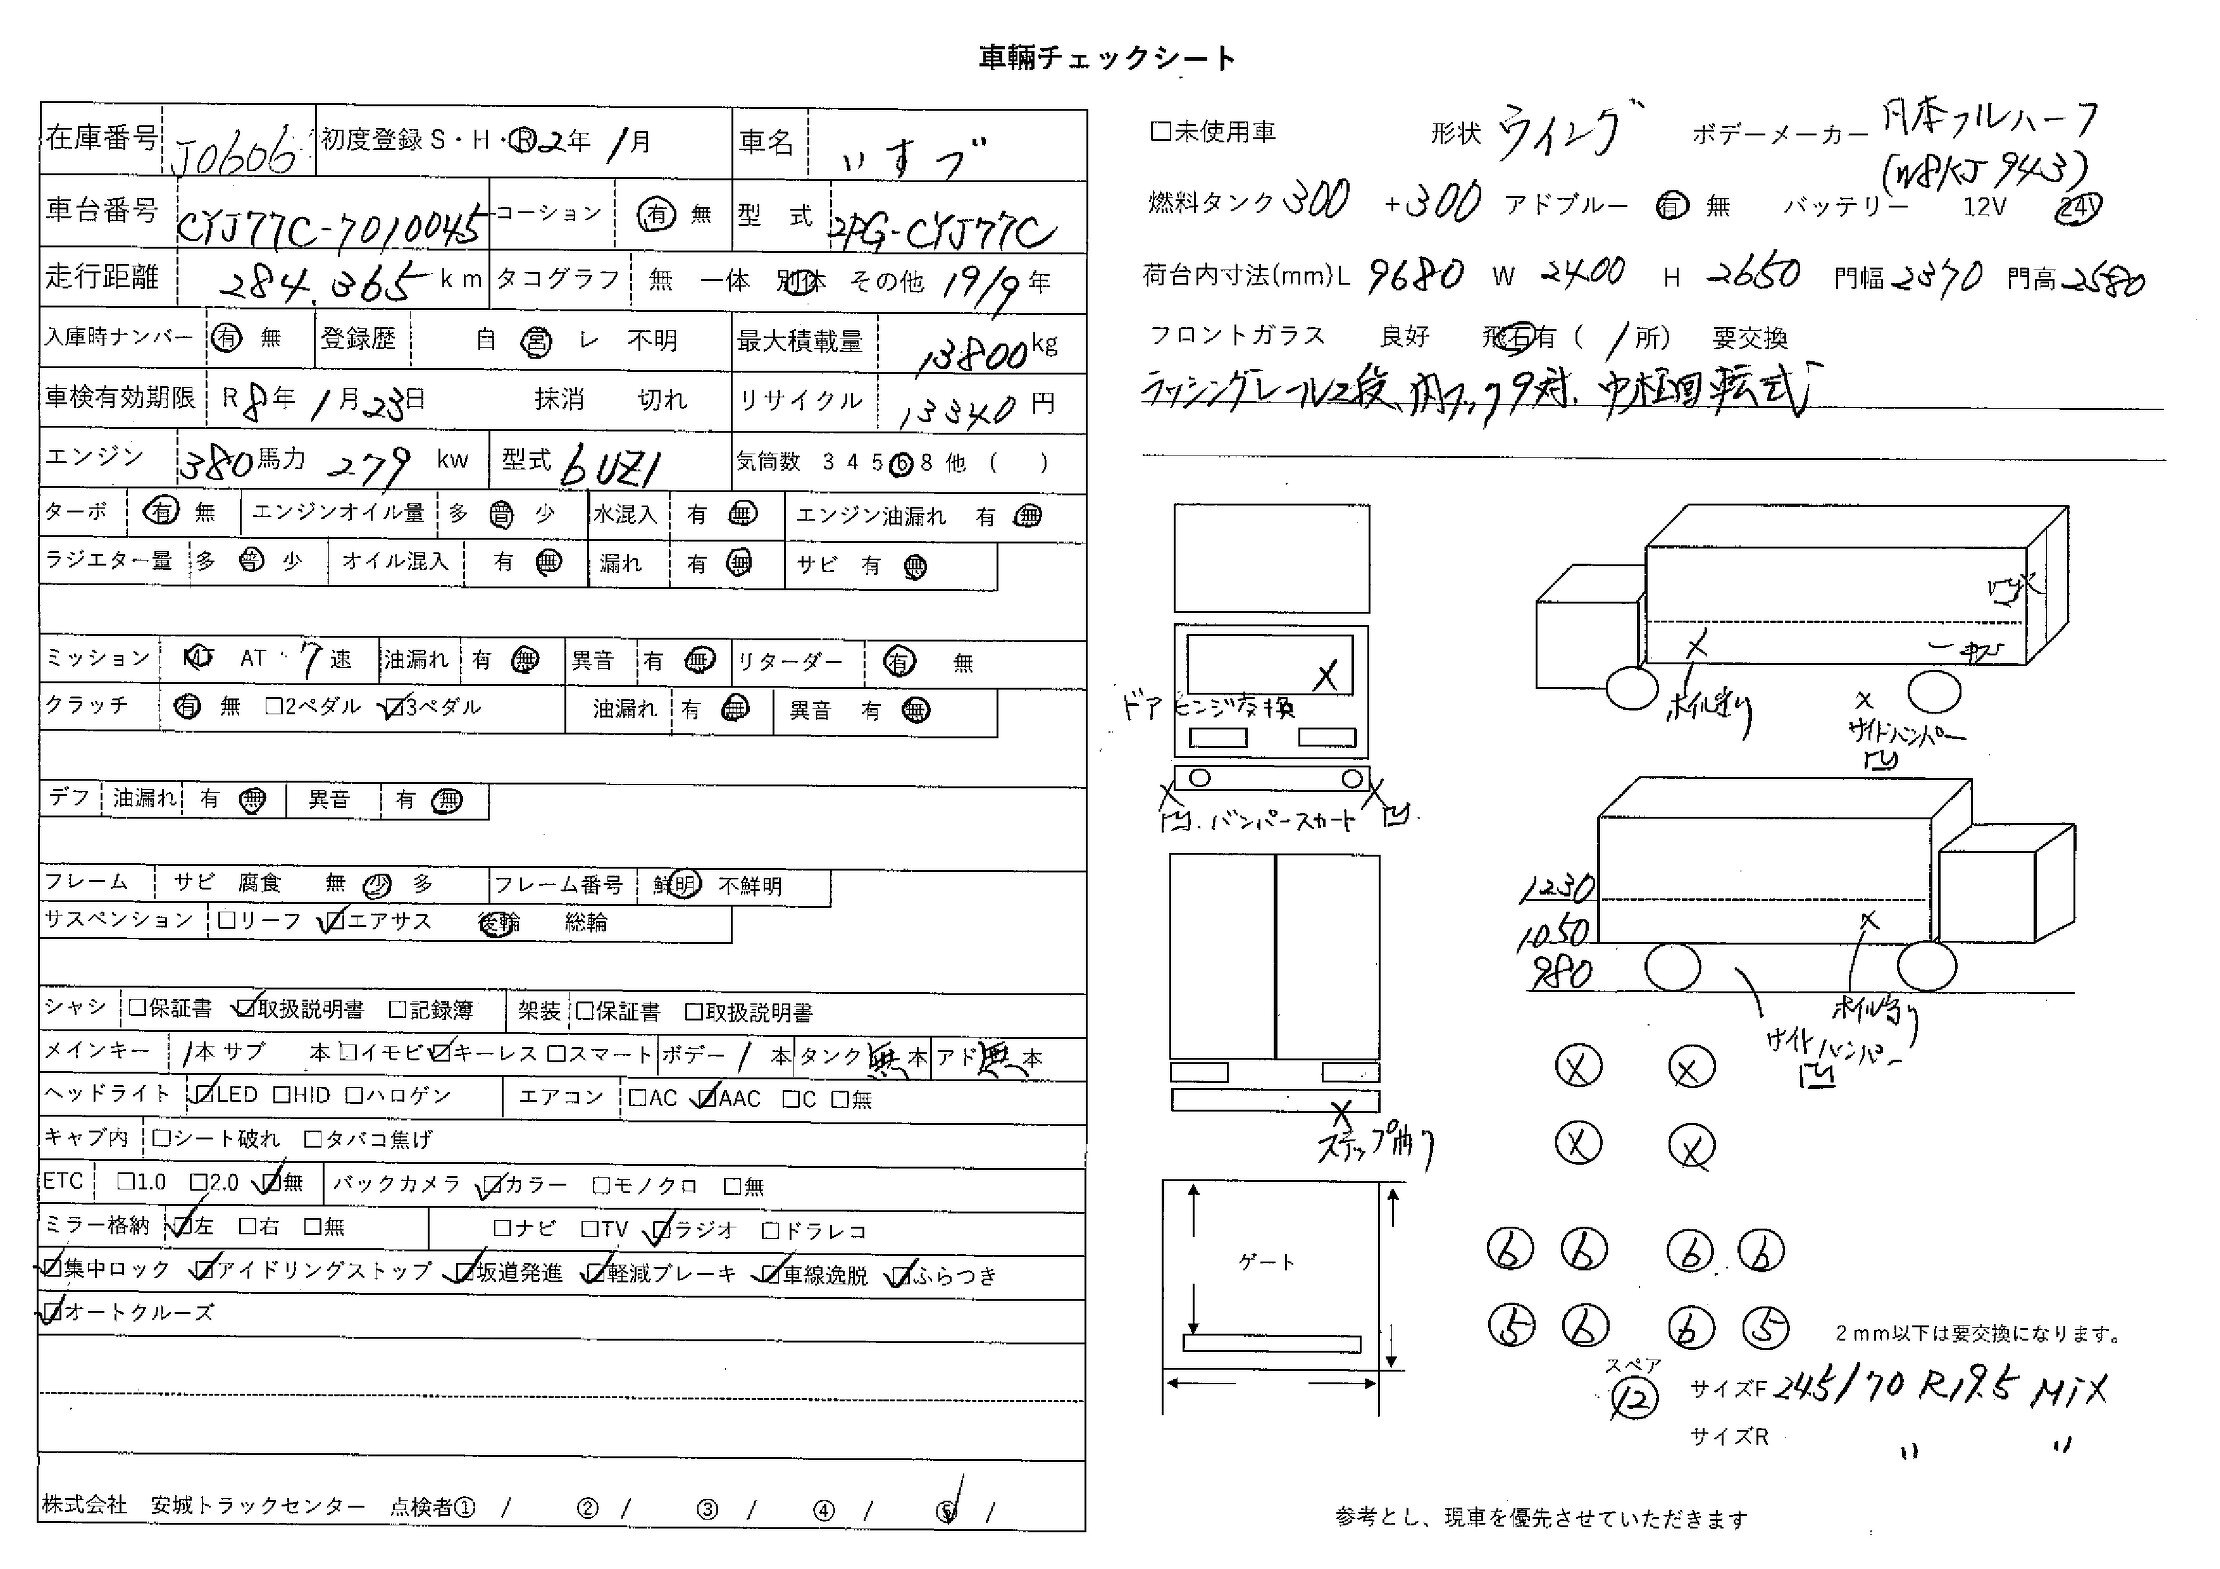 車輛チェックシート
在庫番号 J0606 初度登録 S・H・R 2年 1月 車名 いすゞ
車台番号 CYJ77C-7010045 コーション 有 無 型 式 2PG-CYJ77C
走行距離 284.365 km タコグラフ 無 一体 別体 その他 19/9年
入庫時ナンバー 有 無 登録歴 自 営 レ 不明 最大積載量 13800kg
車検有効期限 R 8年 1月23日 抹消 切れ リサイクル 13340円
エンジン 380馬力 279 kw 型式 6UZ1 気筒数 3 4 5 6 8 他 ( )
ターボ 有 無 エンジンオイル量 多 普 少 水混入 有 無 エンジン油漏れ 有 無
ラジエター量 多 普 少 オイル混入 有 無 漏れ 有 無 サビ 有 無
ミッション MT AT 7速 油漏れ 有 無 異音 有 無 リターダー 有 無
クラッチ 有 無 □2ペダル ☑3ペダル 油漏れ 有 無 異音 有 無
デフ 油漏れ 有 無 異音 有 無
フレーム サビ 腐食 無 少 多 フレーム番号 鮮明 不鮮明
サスペンション □リーフ ☑エアサス 後輪 総輪
シャシ □保証書 ☑取扱説明書 □記録簿 架装 □保証書 □取扱説明書
メインキー 1本 サブ 本 □イモビ ☑キーレス □スマート ボデー 1 本 タンク 無 本 アド 無 本
ヘッドライト ☑LED □HID □ハロゲン エアコン □AC ☑AAC □C □無
キャブ内 □シート破れ □タバコ焦げ
ETC □1.0 □2.0 ☑無 バックカメラ ☑カラー □モノクロ □無
ミラー格納 ☑左 □右 □無 □ナビ □TV ☑ラジオ □ドラレコ
☑集中ロック ☑アイドリングストップ ☑坂道発進 ☑軽減ブレーキ ☑車線逸脱 ☑ふらつき
☑オートクルーズ
株式会社 安城トラックセンター 点検者① / ② / ③ / ④ / ⑤ /
□未使用車 形状 ウイング ボデーメーカー 日本フルハーフ
(W8KJ943)
燃料タンク 300 +300 アドブルー 有 無 バッテリー 12V 24V
荷台内寸法(mm)L 9680 W 2400 H 2650 門幅 2370 門高 2580
フロントガラス 良好 飛石有 ( 1所) 要交換
ラッシングレール2段、角フック9対、中柱回転式
凹 X
X キズ
X
ドアヒンジ交換
ホイル当り
X
サイドバンパー
凹
X X
凹. バンパースカート 凹.
1230
1050
980
X
ホイル当り
サイドバンパー
凹
X
ステップ曲り
ゲート
X X
X X
6 6 6 6
5 6 6 5
2mm以下は要交換になります。
スペア
12
サイズF 245/70 R19.5 MiX
サイズR 〃 〃
参考とし、現車を優先させていただきます